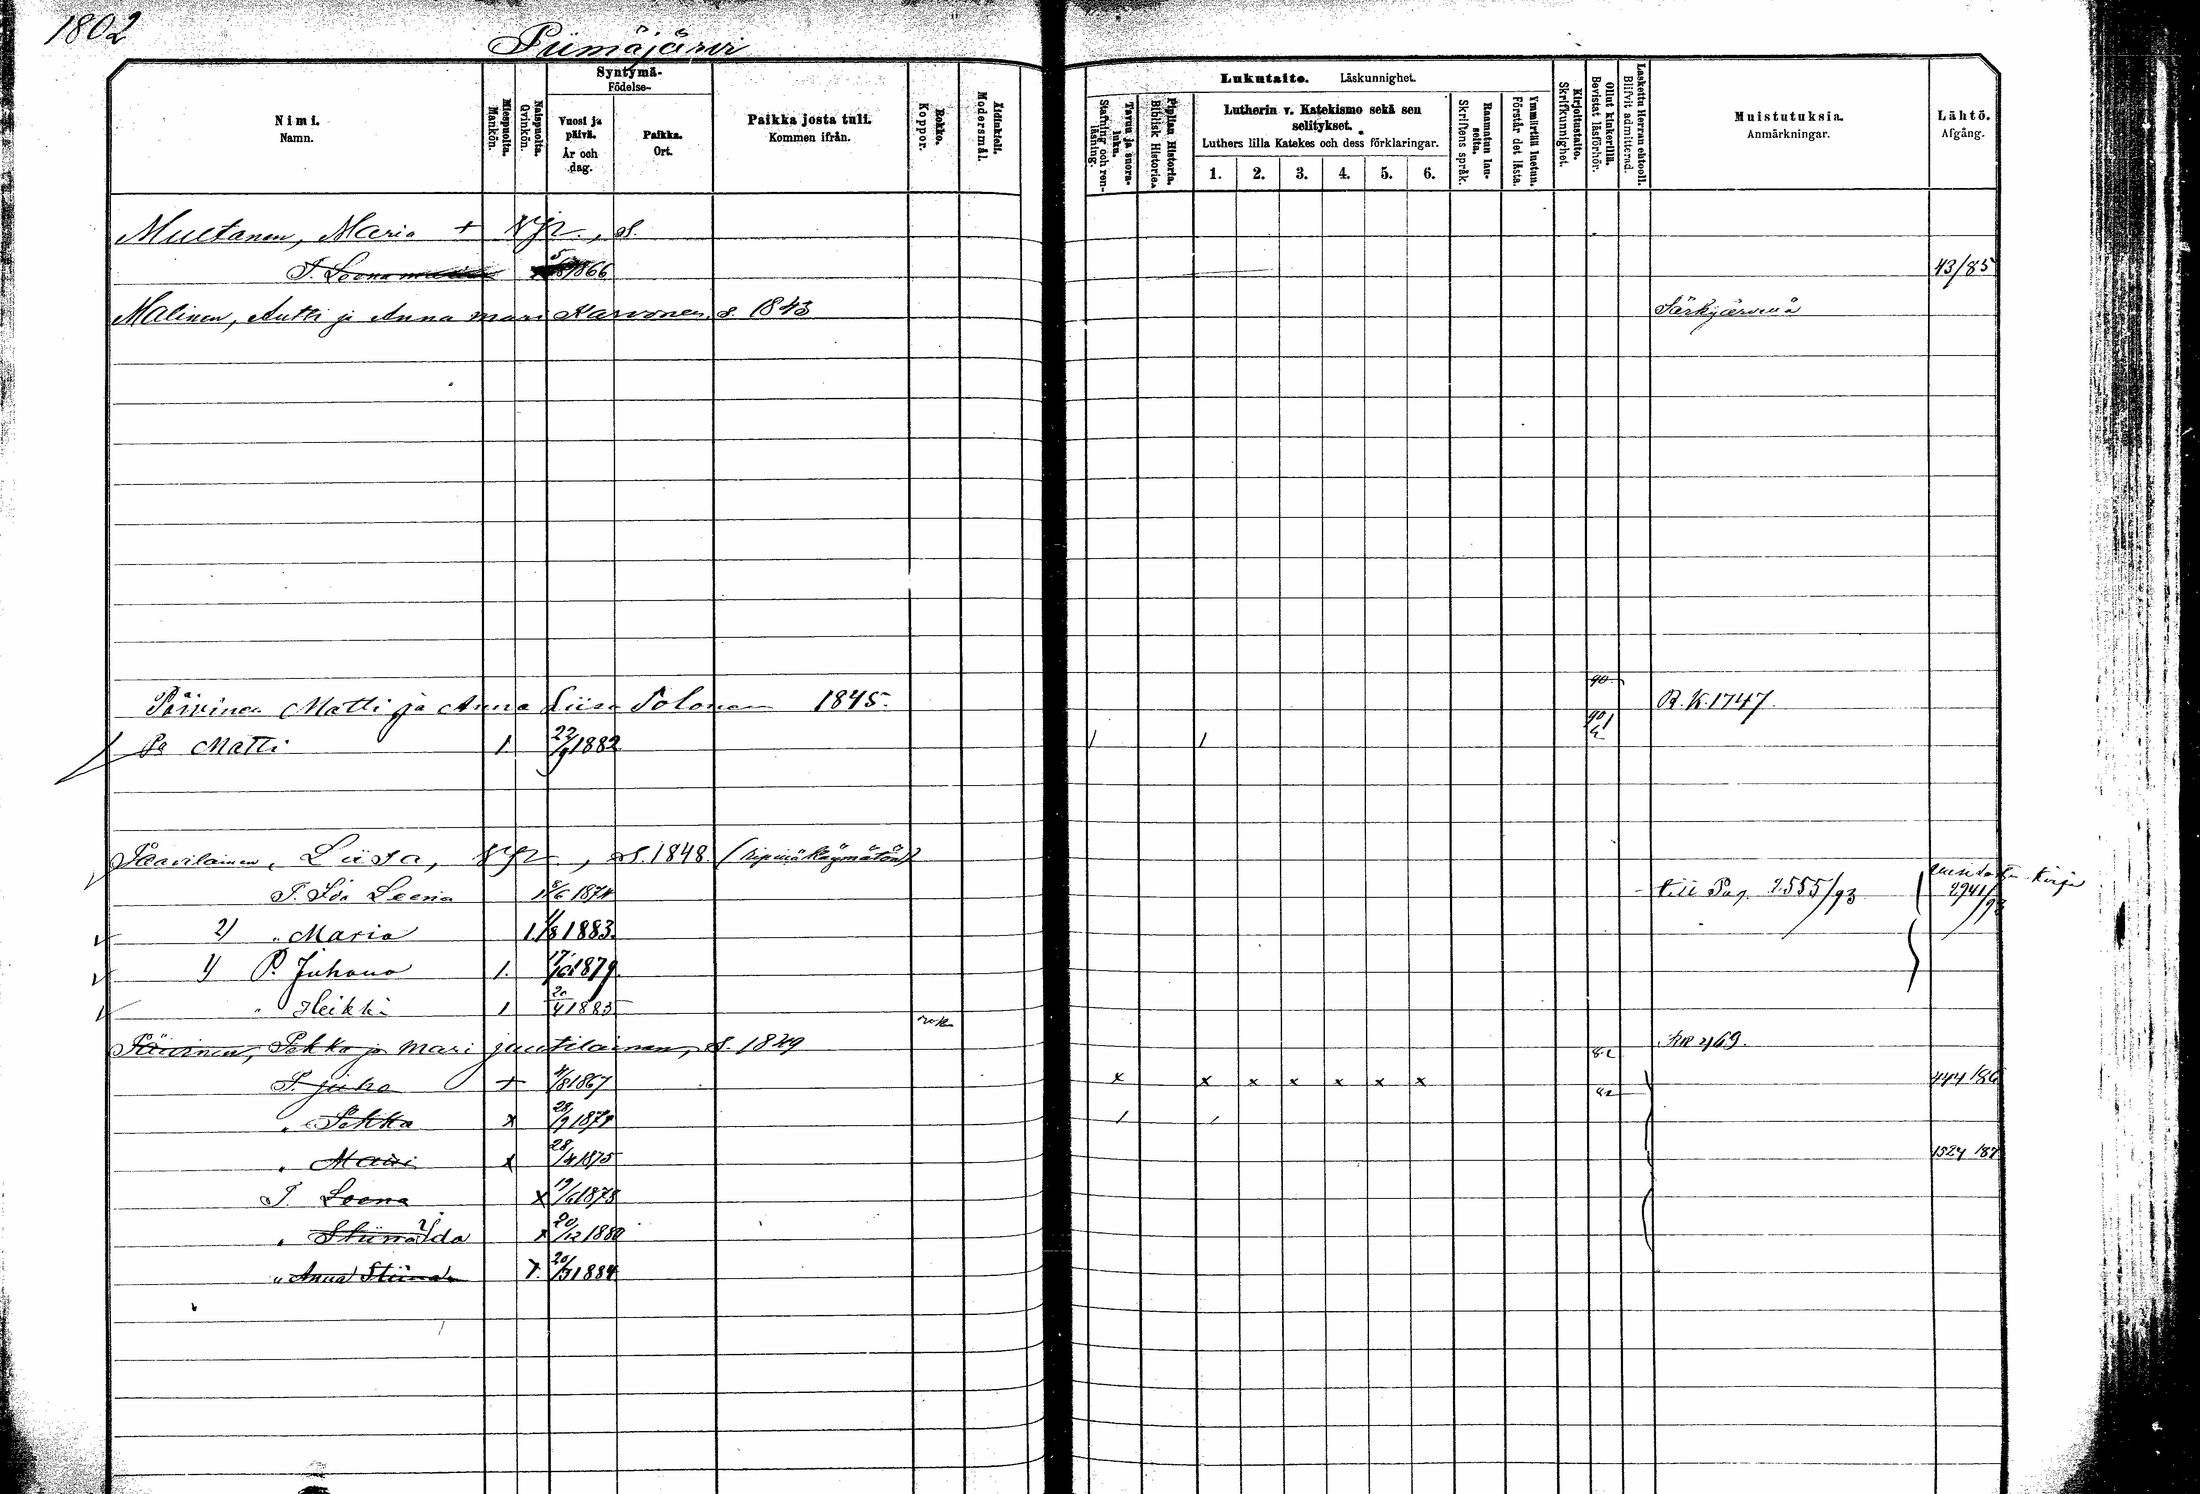 1802
Piimäjärvi
Nimi.
Namn.
Miespuolia.
Mankön.
Naispuolia.
Qvinkön.
Syntymä-
Födelse-
Vuosi ja
päivä.
År och
dag.
Paikka.
Ort.
Paikka josta tuli.
Kommen ifrån.
Rokko.
Koppor.
Äidinkieli.
Modersmål.
Lukutaito. Läskunnighet.
Tavuu ja suora-
luku.
Stafning och ren-
läsning.
Piplian Historia.
Biblisk Historie.
Lutherin v. Katekismo sekä sen
selitykset.
Luthers lilla Katekes och dess förklaringar.
1. 2. 3. 4. 5. 6.
Raamatun lau-
seita.
Skriftens språk.
Ymmärtää luetun.
Förstår det lästa.
Kirjoitustaito.
Skrifkunnighet.
Ollut kinkerillä.
Bevistat läsförhör.
Laskettu Herran ehtooll.
Blifvit admitterad.
Muistutuksia.
Anmärkningar.
Lähtö.
Afgång.
Multanen, Maria + s.
T. Leena 1866 43/85
Malinen, Antti ja Anna Mari Karvonen, s. 1843 Särkijärvellä
Päivinen Matti ja Anna Liisa Tolonen 1845. 90 R.K. 1747.
Pa Matti 1. 22/9 1882 1 1 90
Paavilainen, Liisa, s. 1848. (ripinäkäymätön)
T. Ida Leena 1 8/6 1874 till Pag. 2555/93 2941/93
2) " Maria 1. 11/8 1883.
1) P. Juhana 1. 17/10 1879.
" Heikki 1 20/4 1885
Päivinen, Pekka ja Mari Juutilainen, s. 1849 rok 82 RK 2169.
P. Juho + 4/8 1867 x x x x x x x 82 444/86
" Pekka x 28/9 1871 1 1
" Mari x 28/4 1875 1524/87
T. Leena x 19/6 1878
" Stiina Ida x 20/12 1880
" Anna Stiina x. 20/3 1884